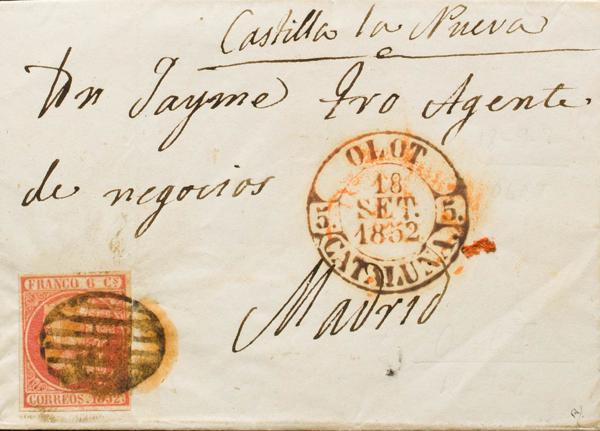 Castilla la Nueva
Dn Jayme Fro Agente
de negocios
Madrid
OLOT
18
SET.
1852
5. 5.
CATALUÑA.
FRANCO 6 Cs
CORREOS. 1852.